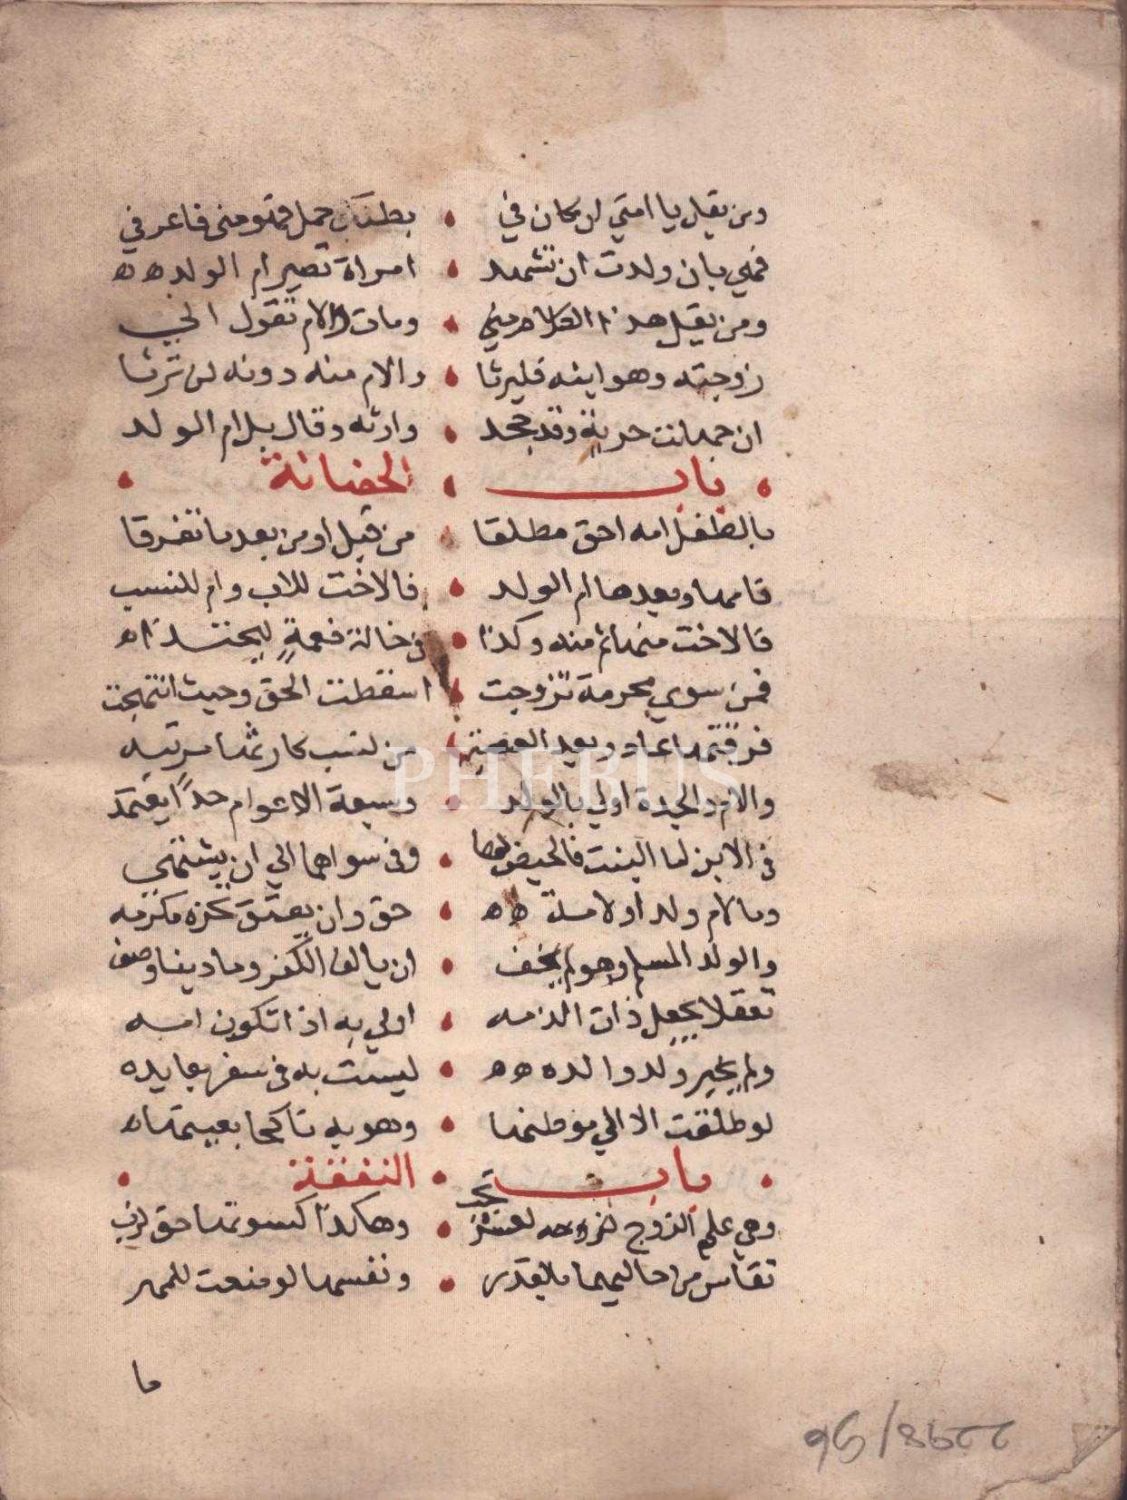 ومن يقل يا امتي ان كان في • بطنك حمل فهو مني فاعرفي
فهي بان ولدت ان تشهد • امراة تصير ام الولد ه ه
ومن يقل هذا الغلام مني • ومات والام تقول اني
زوجته وهو ابنه فليرثا • والام منه دونه لن ترثا
ان جهلت حرية وقد جحد • وارثه وقال بل ام الولد
• باب • الحضانة •
بالطفل امه احق مطلقا • من قبل او من بعد ما تفرقا
فامها وبعدها ام الولد • فالاخت للاب وام للنسب
فالاخت منها ثم منه وكذا • في خالة فعمة ليحتذا ه
فمن سوي محرمة تزوجت • اسقطت الحق وحيث انتهجت
فرقتهما عاد وبعد العصبه • من نسب كارثها مرتبه
والام والجدة اولي بالولد • وسبعة الاعوام حدا يعتمد
في الابن لما البنت فالحيض لها • وفي سواهما الي ان يشتهي
وما لام ولد او لامة ه ه • حق وان يعتق بحره مكرمه
والولد المسلم وهو لم يخف • ان يالف الكفر وما دينا وصف
تعقلا يجعل ذات الذمه • اولي به اذا تكون امه
ولم يخير ولد والده ه ه • ليست به في سفر بعايده
لو طلقت الا الي موطنها • وهو به ناكحا بعينها ه
• باب • النفقة •
وهي علي الزوج لزوجه تجب • وهاكذا كسوتها حق
تقاس من حاليهما بالقدر • ونفسها لو منعت للمهر
ما
PHEBUS
2298/96